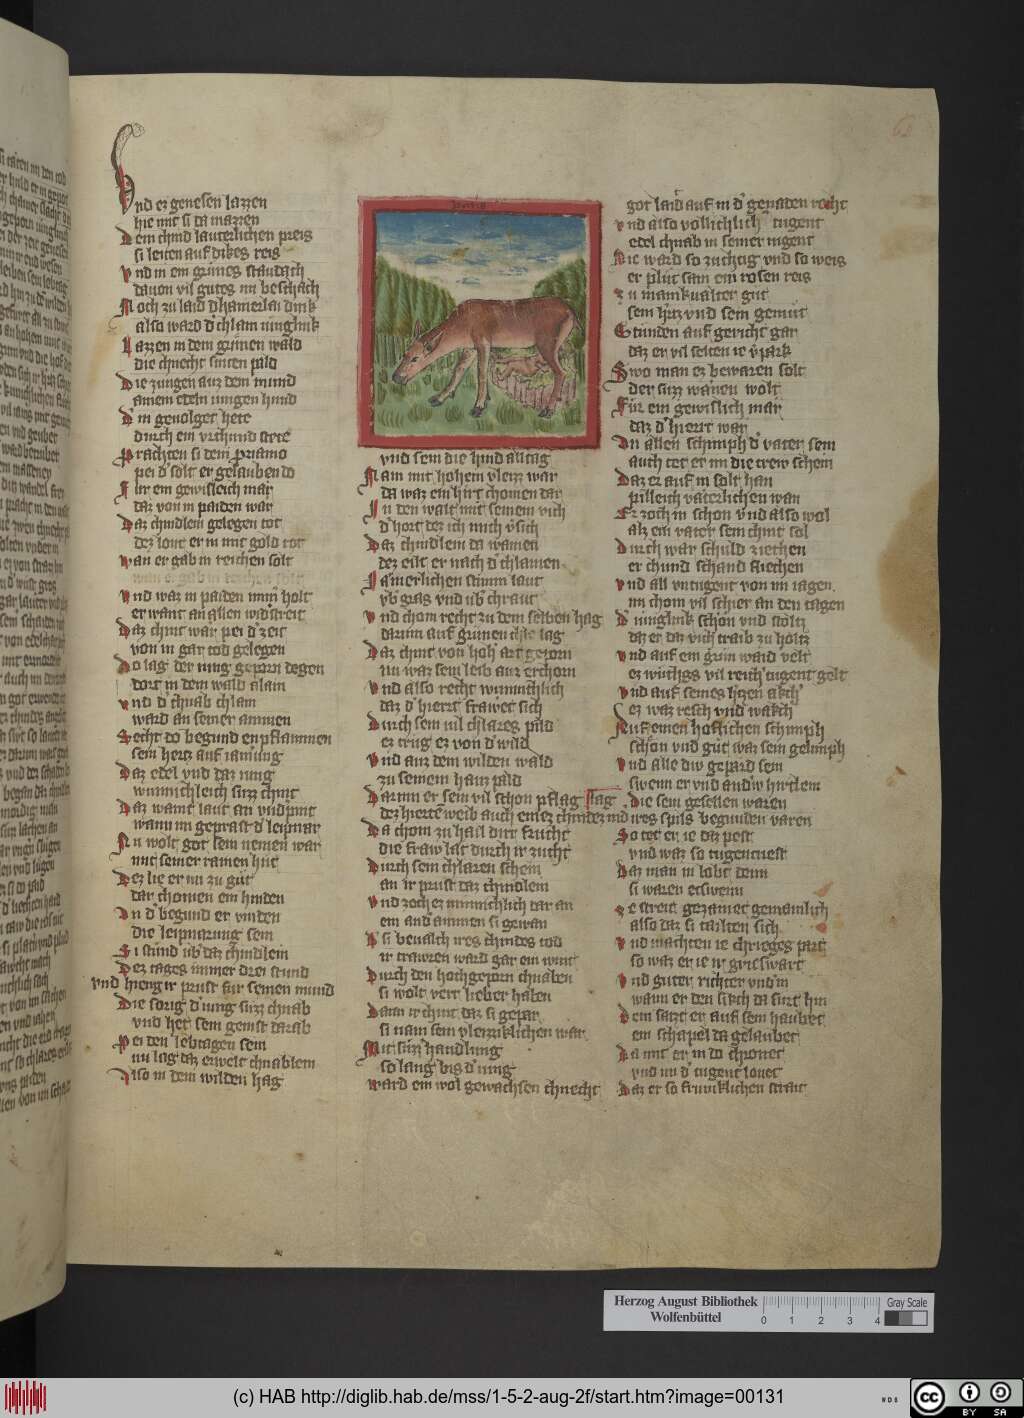 Vnd ez genesen lazzen
hie mit si da mazzen
Dem chind lauterlichen preis
si leiten auf dikes reis
Vnd in ein grunes staudach
dauon vil gutes im beschach
Noch zu laid dhainerlai dink
also ward d' chlain iunglink
Lazzen in dem grunen wald
die chnecht sniten pald
Die zungen auz dem mund
ainem edeln iungen hund
D' in geuolget hete
durch ein vrchund stete
Prachten si dem priamo
pei d' solt er gelauben do
Für ein gewisleich mär
daz von in paiden wär
Daz chindlein gelegen tot
dez lont er in mit gold rot
Wan er gab in reichen solt
wan er gab in reichen solt
Vnd waz in paiden nimm' holt
er want an allen widstreit
Daz chint war pei d' zeit
von in gar tod gelegen
Do lag der iung geporn degen
dort in dem wald alain
Vnd d' chnab chlain
ward an seiner ammen
Secht do begund enpflammen
sein hertz auf iamung
Daz edel vnd daz iung
wunnichleich suzz chint
Daz waint laut an vndpint
wann im geprast d' leipnar
Nu wolt got sein nemen war
mit seiner rainen hut
Dez lie er im zu gut
dar chomen ein hinden
An d' begund er vinden
die leipnarung sein
Si stund vb' daz chindlein
Dez tages immer drei stund
vnd hieng ir prust für seinen mund
Die sorig d' iung suzz chnab
vnd het sein genist darab
Pei den lebtagen sein
nu lag daz erwelt chnablein
Also in dem wilden hag
vnd sein die hind alltag
Nam mit hohem vleizz war
da waz ein hirt chomen dar
In den walt mit seinem vich
d' hort dez ich mich v'sich
Daz chindlein da wainen
dez eilt er nach d' chlainen
Iamerlichen stimm laut
vb' gras vnd vb' chraut
Vnd chom recht zu dem selben hag
darinn auf grunen chle lag
Daz chint von hoh art geporn
im waz sein leib auz erchorn
Vnd also recht wunnichlich
daz d' hierzt frawet sich
Durch sein vil chlares pild
er trug ez von d' wild
Vnd auz dem wilden wald
zu seinem hauz pald
Darinn er sein vil schon pflag
dez hierts weib auch einez chindez nid lag
Da chom zu hail dirr frucht
die fraw lat durch ir zucht
Durch sein chlaren schein
an ir prust daz chindlein
Vnd zoch ez minnichlich dar an
ein and' ammen si gewan
Si beualch ires chindes tod
ir trawren ward gar ein wint
Durch den hochgeporn chnaben
si wolt vert lieber haben
Dann ir chint daz si gepar
si nam sein vleizziklichen war
Mit suzz handlung
so lang bis d' iung
Ward ein wol gewachsen chnecht
got laid auf in d' genaden recht
vnd also vollichlich tugent
edel chnab in seiner iugent
Nie ward so zuchtig vnd so weis
er plut sam ein rosen reis
Zu mankualter gut
sein h'tz vnd sein gemut
Stunden auf gericht gar
daz er vil selten ie v'park
Swo man ez bewaren solt
der suzz wänen wolt
Für ein gewislich mär
daz d' hierzt war
An allen schimph d' vater sein
auch tet er im die trew schein
Daz er auf in solt han
pilleich väterlichen wan
Er zoch in schon vnd also wol
alz ein vater sein chint sol
Durch war schuld ziechen
er chund schand fliechen
Vnd all vntugent von im iagen
im chom vil schier an den tagen
D' iunglink schon vnd stoltz
daz er daz vich traib zu holtz
Vnd auf ein grün waid velt
er wuchgs vil reich tugent gelt
Vnd auf seines h'zen akch
er waz resch vnd wakch
Auf einen hoflichen schimph
schon vnd gut waz sein gelimph
Vnd alle diw gepard sein
swenn er vnd and'w hirtlein
Die sein gesellen waren
wes spils begunden varen
So tet er ie daz pest
vnd waz so tugentuest
Daz man in lobt denn
si waren etswenn
Ze streit gezamet gemainlich
also daz si tailten sich
Vnd machten ie chrieges part
so waz er ie ir grieswart
Vnd guter richter vnd'in
wann er den sikch da furt hin
Dem satzt er auf sein haubet
ein schapel da gelaubet
Da mit er in do chronet
vnd im d' tugent lonet
Daz er so frumklichen strait
Herzog August Bibliothek
Wolfenbüttel
0 1 2 3 4
Gray Scale
(c) HAB http://diglib.hab.de/mss/1-5-2-aug-2f/start.htm?image=00131
WDB
cc BY SA